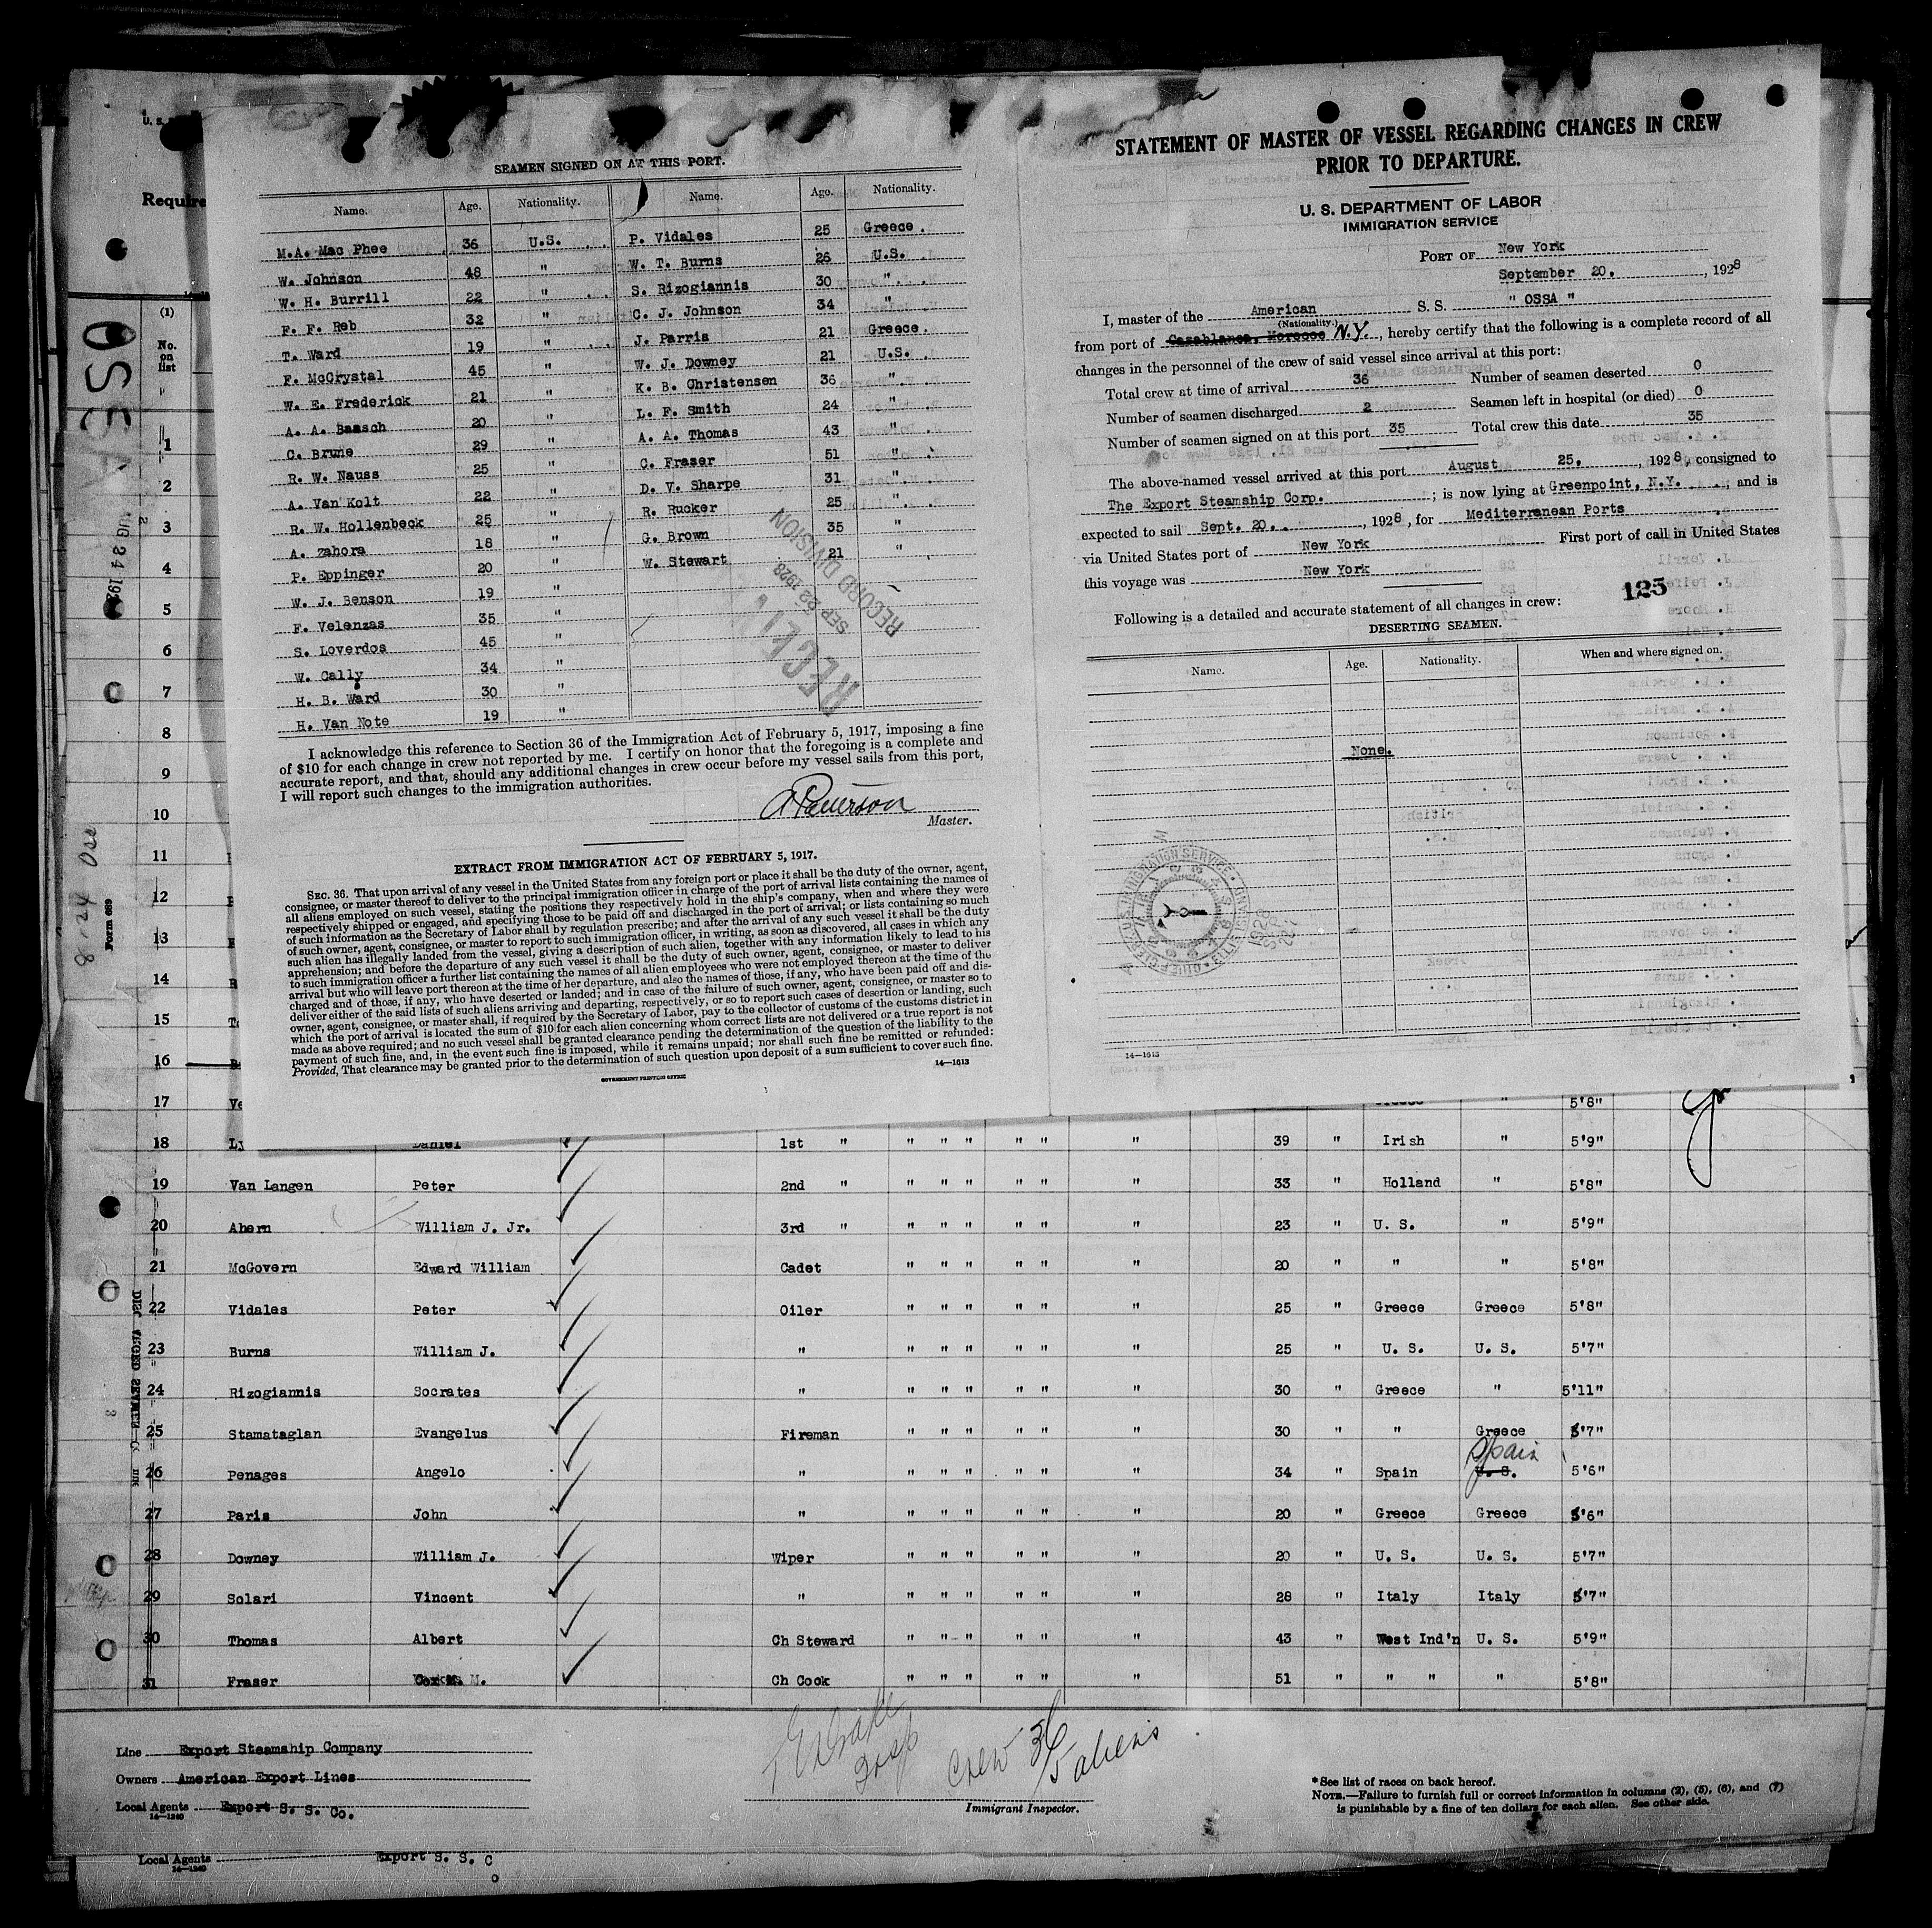 SEAMEN SIGNED ON AT THIS PORT.
Name. Age. Nationality. Name. Age. Nationality.
M.A. Mac Phee 36 U.S. P. Vidales 25 Greece.
W. Johnson 48 " W. T. Burns 26 U.S.
W. H. Burrill 22 " S. Rizogiannis 30 "
F. F. Reb 32 " C. J. Johnson 34 "
T. Ward 19 " J. Parris 21 Greece.
F. McCrystal 45 " W. J. Downey 21 U.S.
W. E. Frederick 21 " K. B. Christensen 36 "
A. A. Baasch 20 " L. F. Smith 24 "
C. Brune 29 " A. A. Thomas 43 "
R. W. Nauss 25 " C. Fraser 51 "
A. Van Kolt 22 " D. V. Sharpe 31 "
R. W. Hollenbeck 25 " R. Rucker 25 "
A. Zahora 18 " G. Brown 35 "
P. Eppinger 20 " W. Stewart 21 "
W. J. Benson 19 "
F. Velenzas 35 "
S. Loverdos 45 "
W. Cally 34 "
H. B. Ward 30 "
H. Van Note 19 "
RECORD DIVISION
SEP 22 1928
I acknowledge this reference to Section 36 of the Immigration Act of February 5, 1917, imposing a fine
of $10 for each change in crew not reported by me. I certify on honor that the foregoing is a complete and
accurate report, and that, should any additional changes in crew occur before my vessel sails from this port,
I will report such changes to the immigration authorities.
Master.
EXTRACT FROM IMMIGRATION ACT OF FEBRUARY 5, 1917.
SEC. 36. That upon arrival of any vessel in the United States from any foreign port or place it shall be the duty of the owner, agent,
consignee, or master thereof to deliver to the principal immigration officer in charge of the port of arrival lists containing the names of
all aliens employed on such vessel, stating the positions they respectively hold in the ship's company, when and where they were
respectively shipped or engaged, and specifying those to be paid off and discharged in the port of arrival; or lists containing so much
of such information as the Secretary of Labor shall by regulation prescribe; and after the arrival of any such vessel it shall be the duty
of such owner, agent, consignee, or master to report to such immigration officer, in writing, as soon as discovered, all cases in which any
such alien has illegally landed from the vessel, giving a description of such alien, together with any information likely to lead to his
apprehension; and before the departure of any such vessel it shall be the duty of such owner, agent, consignee, or master to deliver
to such immigration officer a further list containing the names of all alien employees who were not employed thereon at the time of the
arrival but who will leave port thereon at the time of her departure, and also the names of those, if any, who have been paid off and dis-
charged and of those, if any, who have deserted or landed; and in case of the failure of such owner, agent, consignee, or master so to
deliver either of the said lists of such aliens arriving and departing, respectively, or so to report such cases of desertion or landing, such
owner, agent, consignee, or master shall, if required by the Secretary of Labor, pay to the collector of customs of the customs district in
which the port of arrival is located the sum of $10 for each alien concerning whom correct lists are not delivered or a true report is not
made as above required; and no such vessel shall be granted clearance pending the determination of the question of the liability to the
payment of such fine, and, in the event such fine is imposed, while it remains unpaid; nor shall such fine be remitted or refunded:
Provided, That clearance may be granted prior to the determination of such question upon deposit of a sum sufficient to cover such fine.
14—1613
GOVERNMENT PRINTING OFFICE
STATEMENT OF MASTER OF VESSEL REGARDING CHANGES IN CREW
PRIOR TO DEPARTURE.
U. S. DEPARTMENT OF LABOR
IMMIGRATION SERVICE
PORT OF New York
September 20, , 1928
I, master of the American S. S. " OSSA "
(Nationality.)
from port of Casablanca, Morocco N.Y. , hereby certify that the following is a complete record of all
changes in the personnel of the crew of said vessel since arrival at this port:
Total crew at time of arrival 36 Number of seamen deserted 0
Number of seamen discharged 2 Seamen left in hospital (or died) 0
Number of seamen signed on at this port 35 Total crew this date 35
The above-named vessel arrived at this port August 25, , 1928, consigned to
The Export Steamship Corp. ; is now lying at Greenpoint, N.Y. , and is
expected to sail Sept. 20. , 1928, for Mediterranean Ports
via United States port of New York First port of call in United States
this voyage was New York
125
Following is a detailed and accurate statement of all changes in crew:
DESERTING SEAMEN.
Name. Age. Nationality. When and where signed on.
None.
14—1613
U. S.
Require
(1)
No. on list
OSSA
AUG 24 192
8/24 Oss
Form 689
1
2
3
4
5
6
7
8
9
10
11
12
13
14
15
16
17 Ve " 5'8"
18 Daniel 1st " " " " " " " 39 " Irish " 5'9"
19 Van Langen Peter 2nd " " " " " " " 33 " Holland " 5'8"
20 Ahern William J. Jr. 3rd " " " " " " " 23 " U. S. " 5'9"
21 McGovern Edward William Cadet " " " " " " 20 " " " 5'8"
22 Vidales Peter Oiler " " " " " " 25 " Greece Greece 5'8"
23 Burns William J. " " " " " " " 25 " U. S. U. S. 5'7"
24 Rizogiannis Socrates " " " " " " " 30 " Greece " 5'11"
25 Stamataglan Evangelus Fireman " " " " " " 30 " " Greece 5'7"
26 Penages Angelo " " " " " " " 34 " Spain U. S. Spain 5'6"
27 Paris John " " " " " " " 20 " Greece Greece 5'6"
28 Downey William J. Wiper " " " " " " 20 " U. S. U. S. 5'7"
29 Solari Vincent " " " " " " " 28 " Italy Italy 5'7"
30 Thomas Albert Ch Steward " " " " " " 43 " West Ind'n U. S. 5'9"
31 Fraser M. Ch Cook " " " " " " 51 " " " " 5'8"
Line Export Steamship Company
Owners American Export Lines
Local Agents Export S. S. Co.
14—1240
Crew 36
5 aliens
Immigrant Inspector.
*See list of races on back hereof.
NOTE.—Failure to furnish full or correct information in columns (2), (5), (6), and (7)
is punishable by a fine of ten dollars for each alien. See other side.
Local Agents Export S. S. Co
14—1240